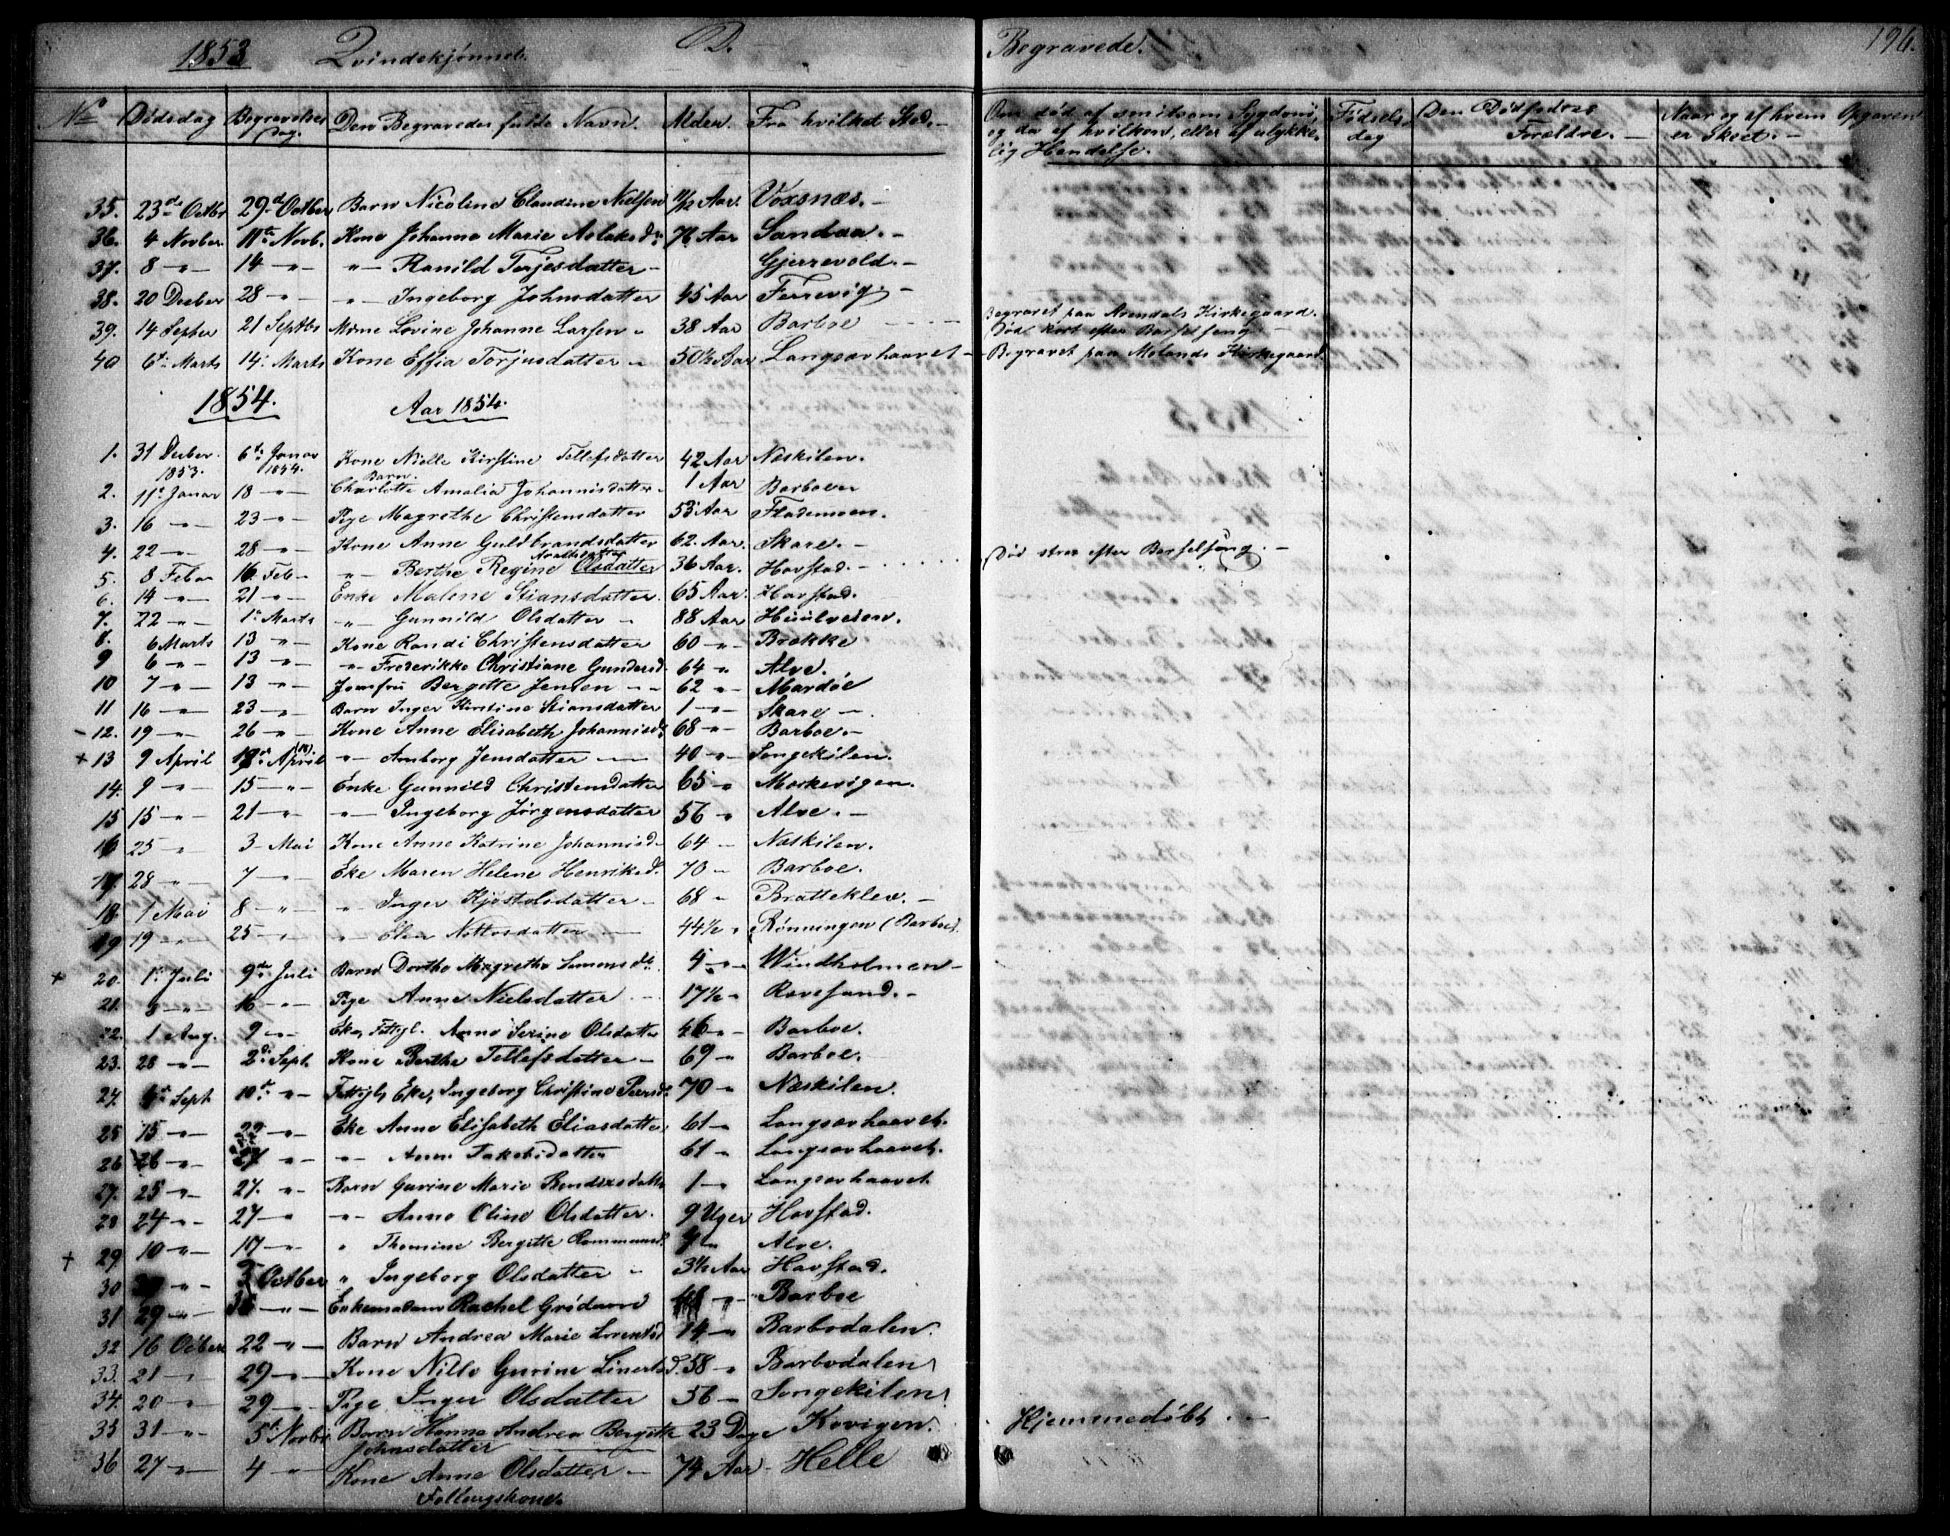 1853 Qvindekjønnet. D. Begravede. 196.
No Dødsdag Begravelses Dag. Den Begravedes fulde Navn. Alder. Fra hvilket Sted. Om død af smitsom Sygdom, og da af hvilken, eller af ulykkelig Hendelse. Fødsels dag Den Dødfødtes Forældre. Naar og af hvem Opgaven er Skeet.
35. 23d Octbr 29d Octber Barn Nicoline Claudine Nielsen 11/12 Aar. Voxsnæs.
36. 4 Novber 11te Novb. Kone Johanne Marie Aslaksd. 76 Aar Sandaa.
37. 8 " 14 " " Ranild Torjesdatter Gjerrevold.
38. 20 Decber 28 " " Ingeborg Johnsdatter 45 Aar Ferrevig
39. 14 Septer 21 Septbr Mdme Lovine Johanne Larsen 38 Aar Barboe Begravet paa Arendals Kirkegaard. Død kort efter Barselseng.
40 6te Marts 14. Marts Kone Effia Torjusdatter 50½ Aar Langsævhaavet Begravet paa Molands Kirkegaard.
1854. Aar 1854.
1. 31 Decber 1853. 6te Januar 1854. Kone Nielle Kirstine Tellefsdatter 42 Aar Næskilen.
2. 11te Januar 18 " Barn Charlotte Amalia Johannisdatter 1 Aar Barboe
3. 16 " 23 " Pige Magrethe Christensdatter 53 Aar Flademoen.
4. 22 " 28 " Kone Anne Guldbrandsdatter 62. Aar. Skare.
5. 8 Febr 16 Feb " Berthe Regine Olsdatter 36 Aar. Havstad. Død strax efter Barselseng.
6. 14 " 21 " Enke Malene Stiansdatter. 65 Aar. Havstad.
7. 22 " 1. Marts " Gunnild Olsdatter 88 Aar
8. 6 Marts 13 " Kone Randi Christensdatter 60 " Brække
9 6 " 13 " " Frederikke Christiane Gundersd 64 " Alve.
10 7 " 13 " Jomfru Bergitte Jensen 62 " Mardøe
11 16 " 23 " Barn Inger Kirstine Stiansdatter 1 " Skare
12. 19 " 26 " Kone Anne Elisabeth Johannisd. 68 " Barboe.
+ 13 9 April April " Amborg Jensdatter 40 " Songekilen.
14. 9 " 15 " Enke Gunnild Christensdatter 65 " Morkevigen.
15 15 " 21 " " Ingeborg Jørgensdatter 56 " Alve.
16 25 " 3 Mai Kone Anne Katrine Johannisd 64 Næskilen.
17 28 " 7 " Eke Maren Helene Henriksd. 70 " Barboe.
18. 1 Mai 8 " " Inger Kjøstolsdatter 68 " Bratteklev.
19 19 " 25 " " Elea Nottosdatter 44½ " Rønningen (Barboe).
+ 20. 1. Juli 9de Juli Barn Dorthe Magrethe Simonsd. 4 " Windholmen
21. 9 " 16 " Pige Anne Nielsdatter 17½ " Rævesand.
22. 1 Aug. 9 " Eke, Fattigl. Anne Serine Olsdatter 46 " Barboe.
23. 28 " 2d. Sept. Kone Berthe Tellefsdatter 69 " Barboe.
24. Sept 10de " Fattigl, Eke, Ingeborg Christine Peersd. 70 " Næskilen.
25 15 " 22 " Eke Anne Elisabeth Eliasdatter 61 " Langsævhaavet.
26 26 " 27 " " Anne Jakobsdatter 61 " Langsævhaavet.
27. 25 " 27. " Barn Gurine Marie 1 " Langsævhaavet
28 24 " 27 " " Anne Oline Olsdatter. 9 Uger Havstad.
+ 29 10 " 17 " " Thomine Bergitte Alve.
30 " 5 Octber " Ingeborg Olsdatter 3½ Aar Havstad.
31 29 " " Enkemadame Rachel Grødum " Barboe
32 16 Octber 22 " Barn Andrea Marie Lorentsd 14 " Barbodalen.
33. 21 " 29 " Kone Nille Gurine Linertsd. 58 " Barbodalen
34. 20 " 29 " Pige Inger Olsdatter 56 " Songekilen
35 31 " 5te Novbr Barn Hanne Andrea Bergitte Johnsdatter 23 Dage Kovigen. Hjemmedøbt.
36 27 " 4 " Kone Anne Olsdatter 74 Aar Helle